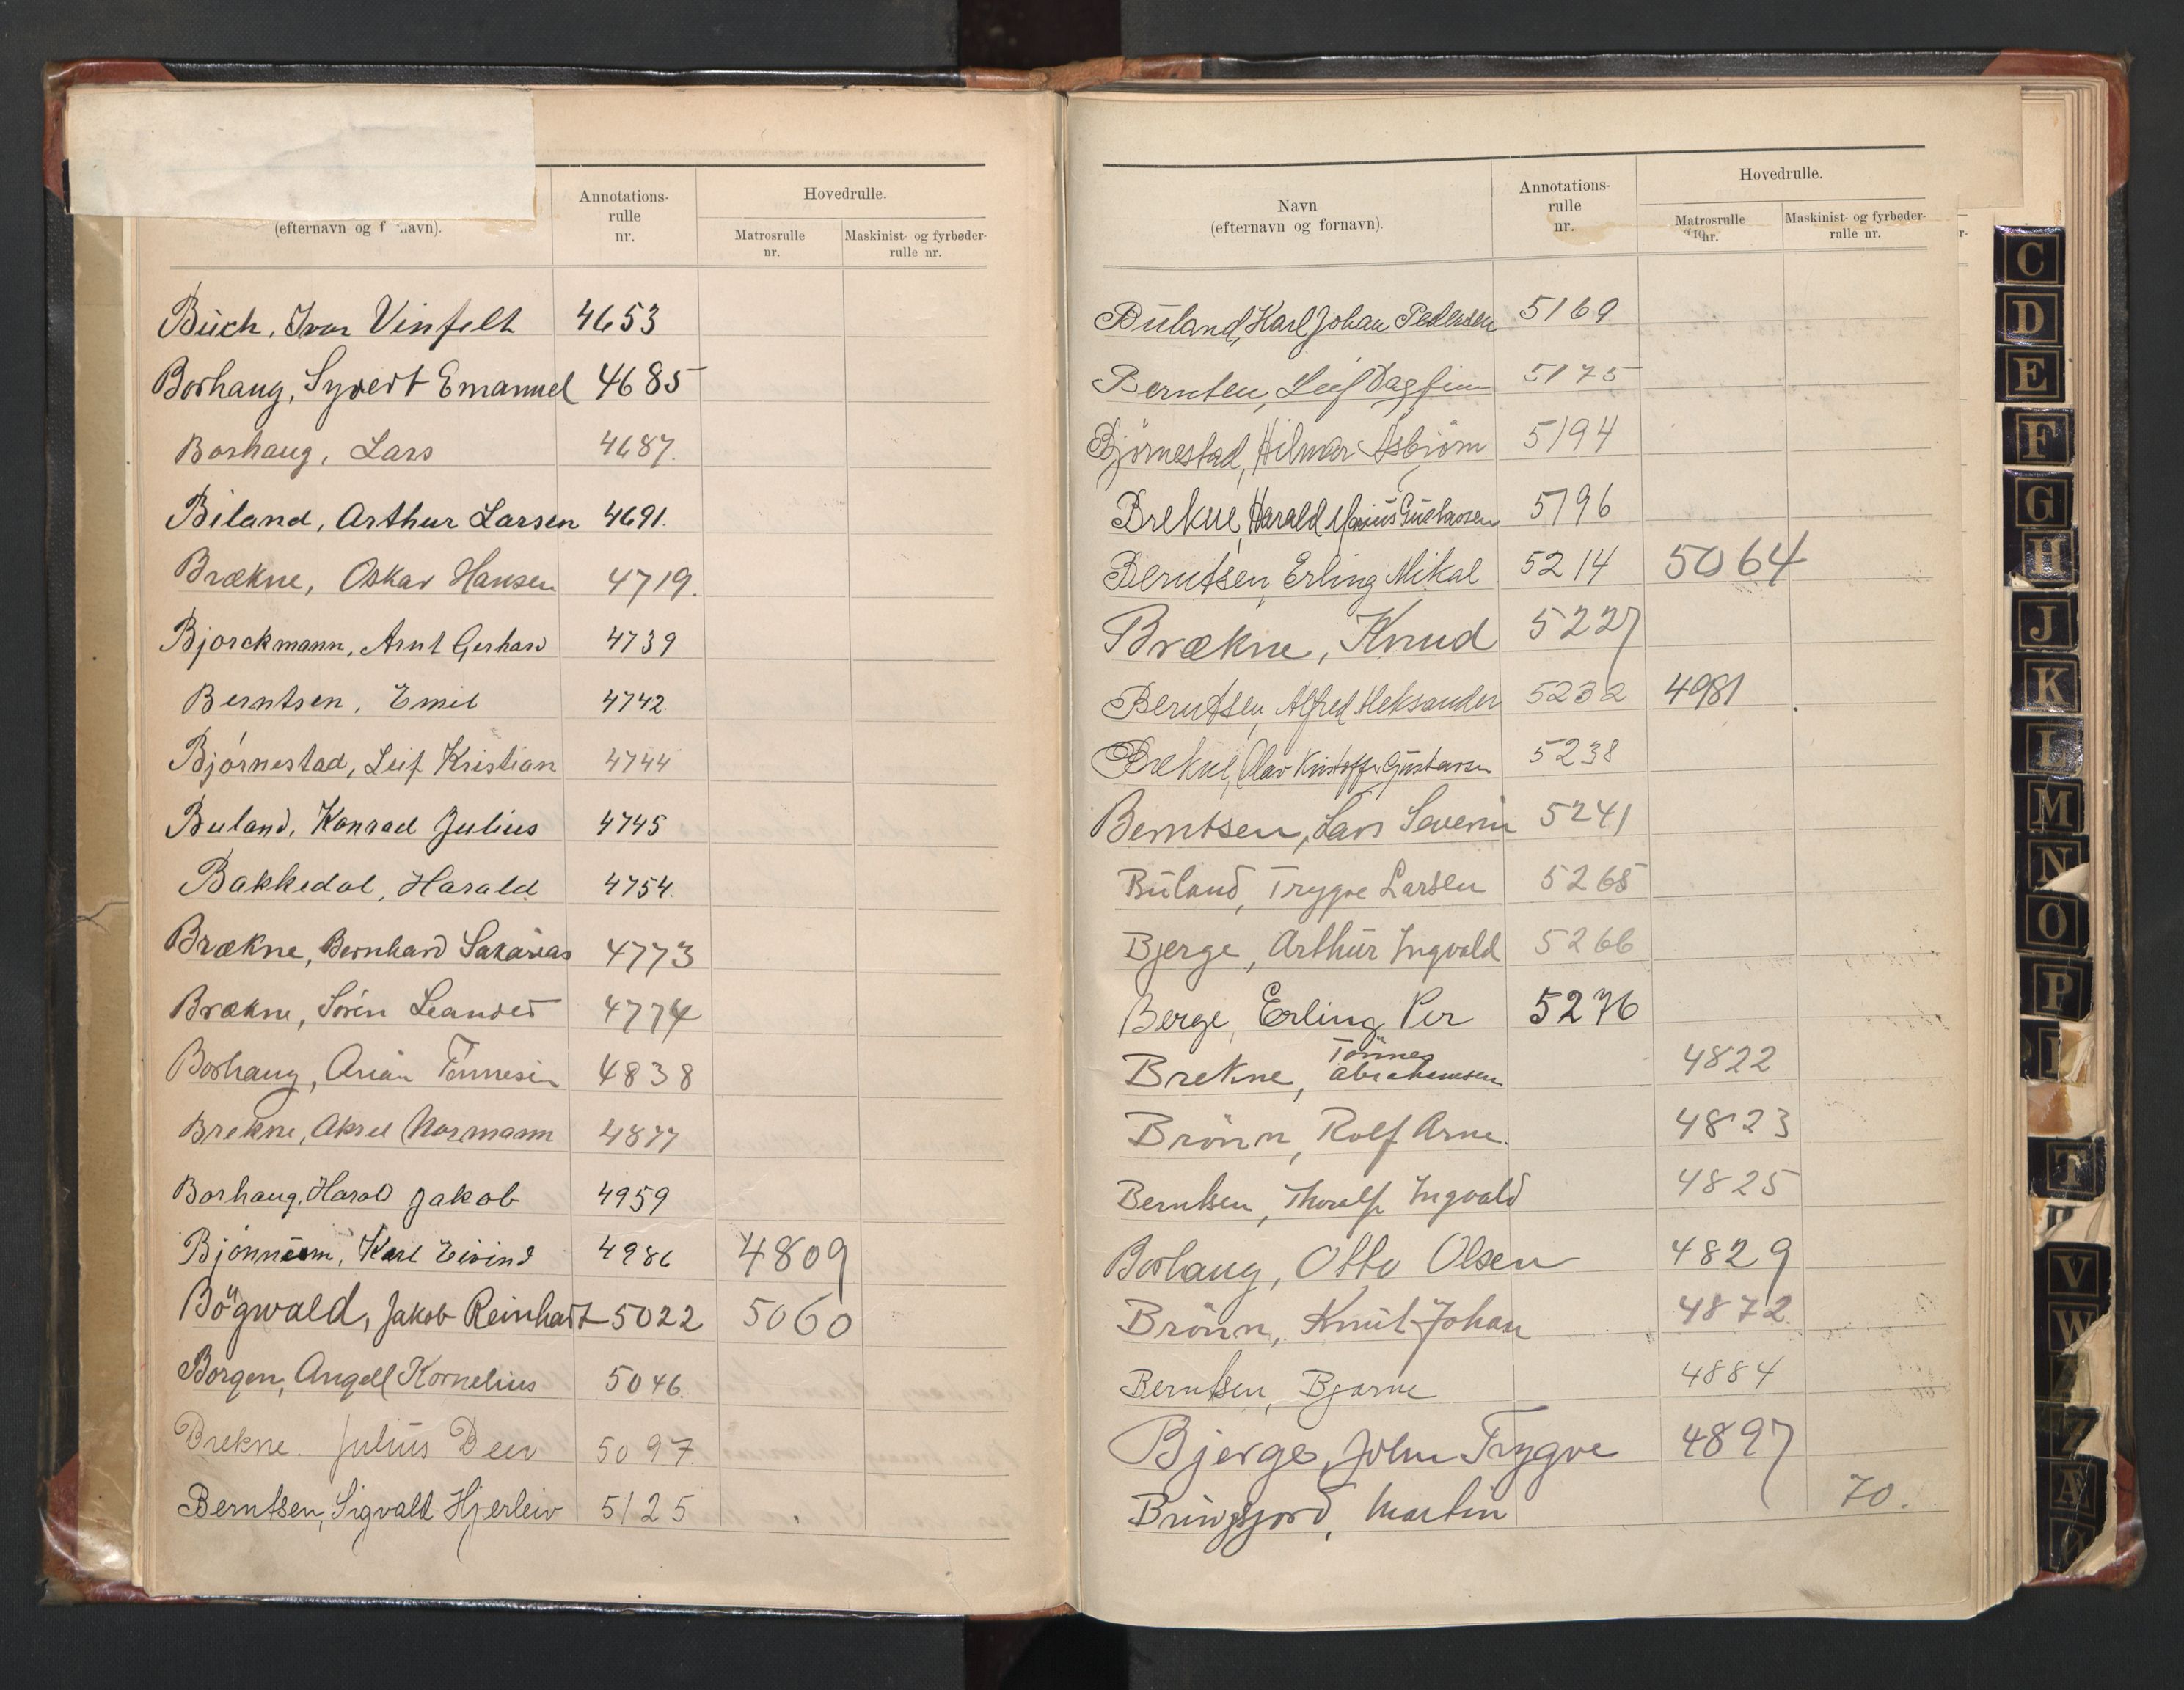 (efternavn og f navn).
Annotations-
rulle
nr.
Hovedrulle.
Matrosrulle
nr.
Maskinist- og fyrbøder-
rulle nr.
Buch, Ivar Vinfelt 4653
Borhaug, Syvert Emanuel 4685
Borhaug, Lars 4687.
Biland, Arthur Larsen 4691.
Brækne, Oskar Hansen 4719.
Bjorckmann, Arnt Gerhard 4739
Berntsen, Emil 4742
Bjørnestad, Leif Kristian 4744
Buland, Konrad Julius 4745
Bakkedal, Harald 4754.
Brækne, Bernhard Sakarias 4773
Brækne, Sørin Leander 4774
Borhaug, Arian Tønnesen 4838
Brekne, Aksel Normann 4877
Borhaug, Harald Jakob 4959
Karl Eivind 4986 4809
Bögwald, Jakob Reinhart 5022 5060
Borgen, Angell Kornelius 5046.
Brekne. Julius 5097.
Berntsen, Sigvald Hjerleiv 5125
Navn
(efternavn og fornavn).
Annotations-
rulle
nr.
Hovedrulle.
Matrosrulle
nr.
Maskinist- og fyrbøder-
rulle nr.
Buland, Karl Johan Pedersen 5169
Berntsen, Leif Dagfinn 5175
Bjørnestad, Hilmar Asbjørn 5194
Brekne, Harald Marius Gustavsen 5196
Berntsen, Erling Mikal 5214 5064
Brækne, Knud 5227
Berntsen, Alfred Aleksander 5232 4981
Brekne, Olav Kristoffer Gustavsen 5238
Berntsen, Lars Severin 5241
Buland, Trygve Larsen 5265
Bjerge, Arthur Ingvald 5266
Berge, Erling Per 5276
Tønnes
Brekne, Abrahamsen 4822
Brönn, Rolf Arne. 4823
Berntsen, Thoralf Ingvald 4825
Borhaug, Otto Olsen 4829
Brönn, Knut Johan 4872.
Berntsen, Bjarne 4884
Bjerge, John Trygve 4897
Bringsjord, Martin 70.
C
D
E
F
G
H
J
K
L
M
N
O
P
T
V
W
Z
Æ